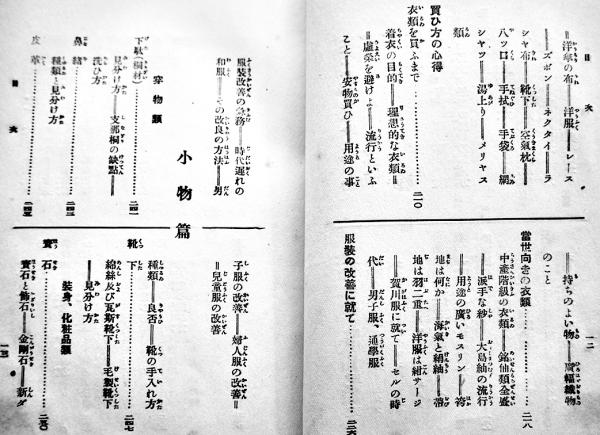 目次
一二
＝洋傘の布＝洋服＝レース
＝ズボン＝ネクタイ＝ラ
シャ布＝靴下＝空氣枕＝
八ッ口＝手拭＝手袋＝網
シャツ＝湯上り＝メリヤス
類
買ひ方の心得
衣類を買ふまで…………二一〇
着衣の目的＝理想的な衣類＝
＝虛榮を避けよ＝流行といふ
こと＝安物買ひ＝用途の事
＝持ちのよい物＝廣幅織物
のこと
當世向きの衣類…………二一八
中産階級の衣類＝銘仙類全盛
＝派手な紗＝大島紬の流行
＝用途の廣いモスリン＝袴
地は何か＝海氣と絹紬＝蒲
地は羽二重＝洋服は紺サージ
＝賀川服に就て＝セルの時
代＝男子服、通學服
服裝の改善に就て…………二三六
服裝改善の急務＝時代遲れの
和服＝その改良の方法＝男
子服の改善＝婦人服の改善＝
＝兒童服の改善
小物篇
穿物類
下駄（桐材）…………二四一
見分け方＝支那桐の缺點＝
洗ひ方
鼻緒…………二四三
種類と見分け方
皮革…………二四五
靴下…………二四七
種類＝良否＝靴の手入れ方
綿絲及び瓦斯靴下＝毛製靴下
＝見分け方
裝身、化粧品類
寶石…………二五〇
寶石と飾石＝金剛石＝新ダ
目次
一三